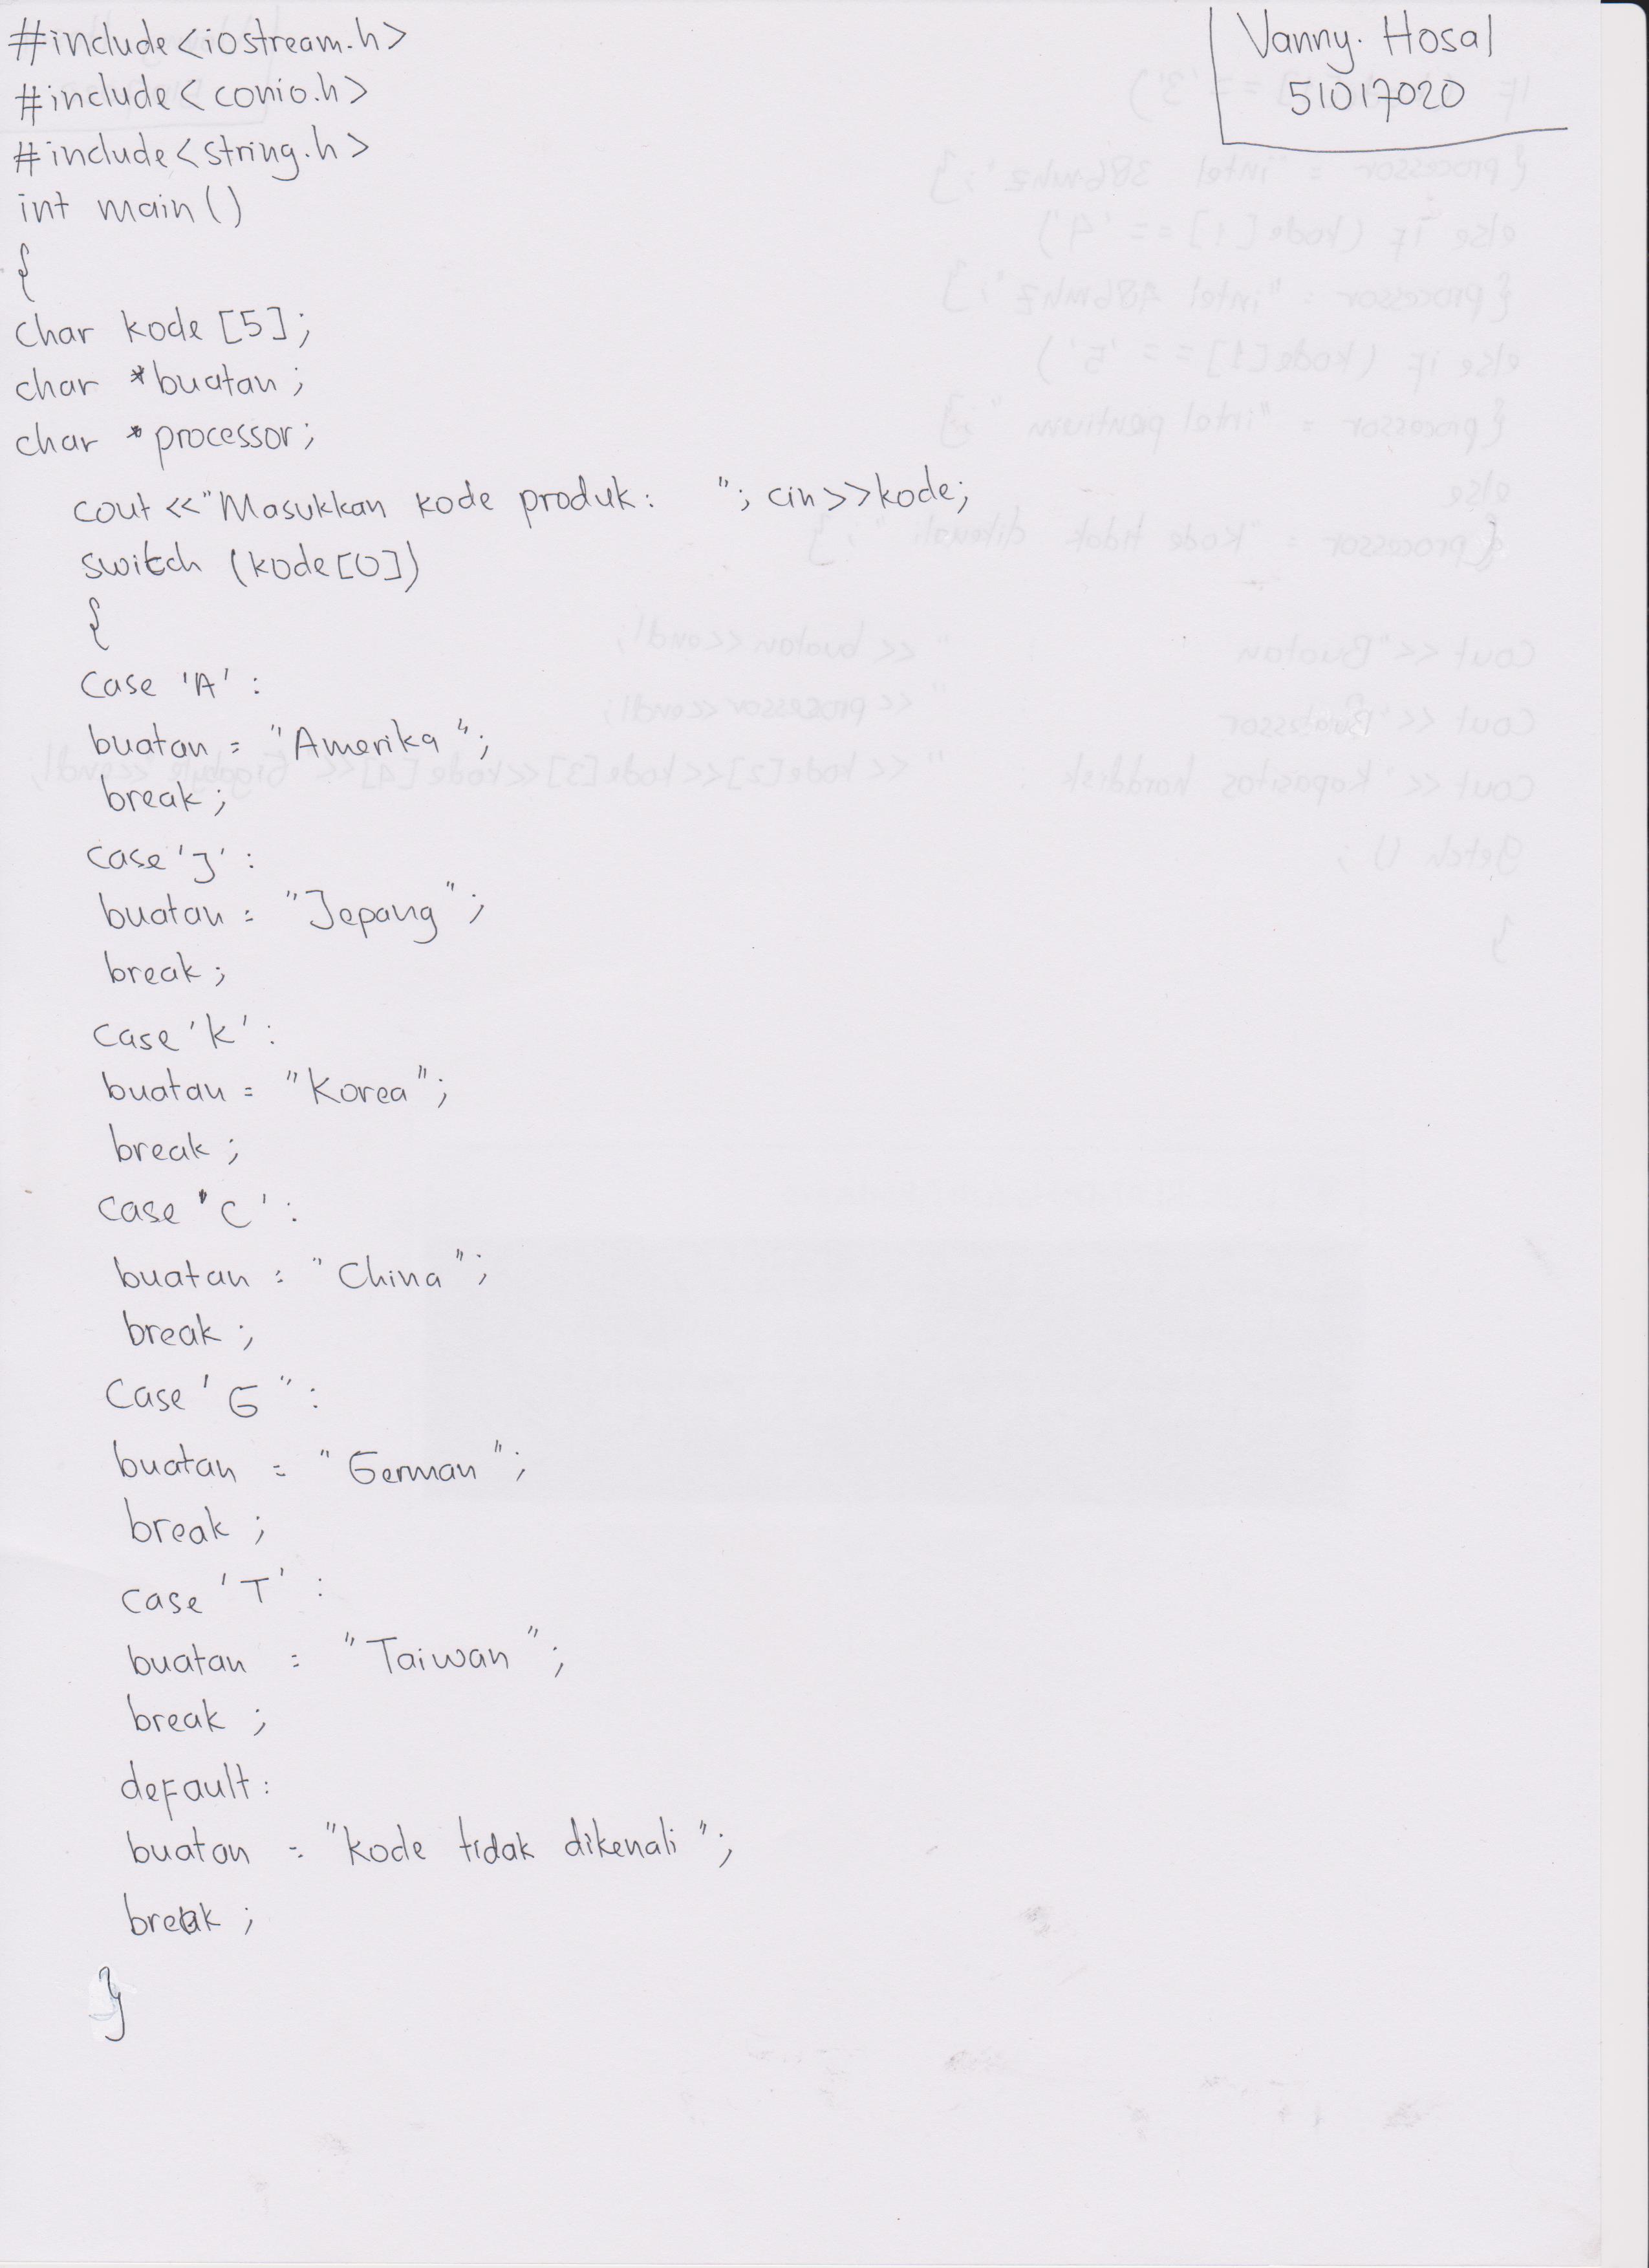 #include<iostream.h>
#include<conio.h>
#include<string.h>
int main()
{
char kode [5];
char *buatan;
char *processor;
cout <<"Masukkan kode produk: "; cin>>kode;
switch (kode[0])
{
case 'A' :
buatan = "Amerika";
break;
case 'J' :
buatan = "Jepang";
break;
case 'K' :
buatan = "Korea";
break;
case 'C' :
buatan = "China";
break;
case 'G" :
buatan = "German";
break;
case 'T' :
buatan = "Taiwan";
break;
default:
buatan = "kode tidak dikenali";
break;
}
Vanny. Hosal
51017020